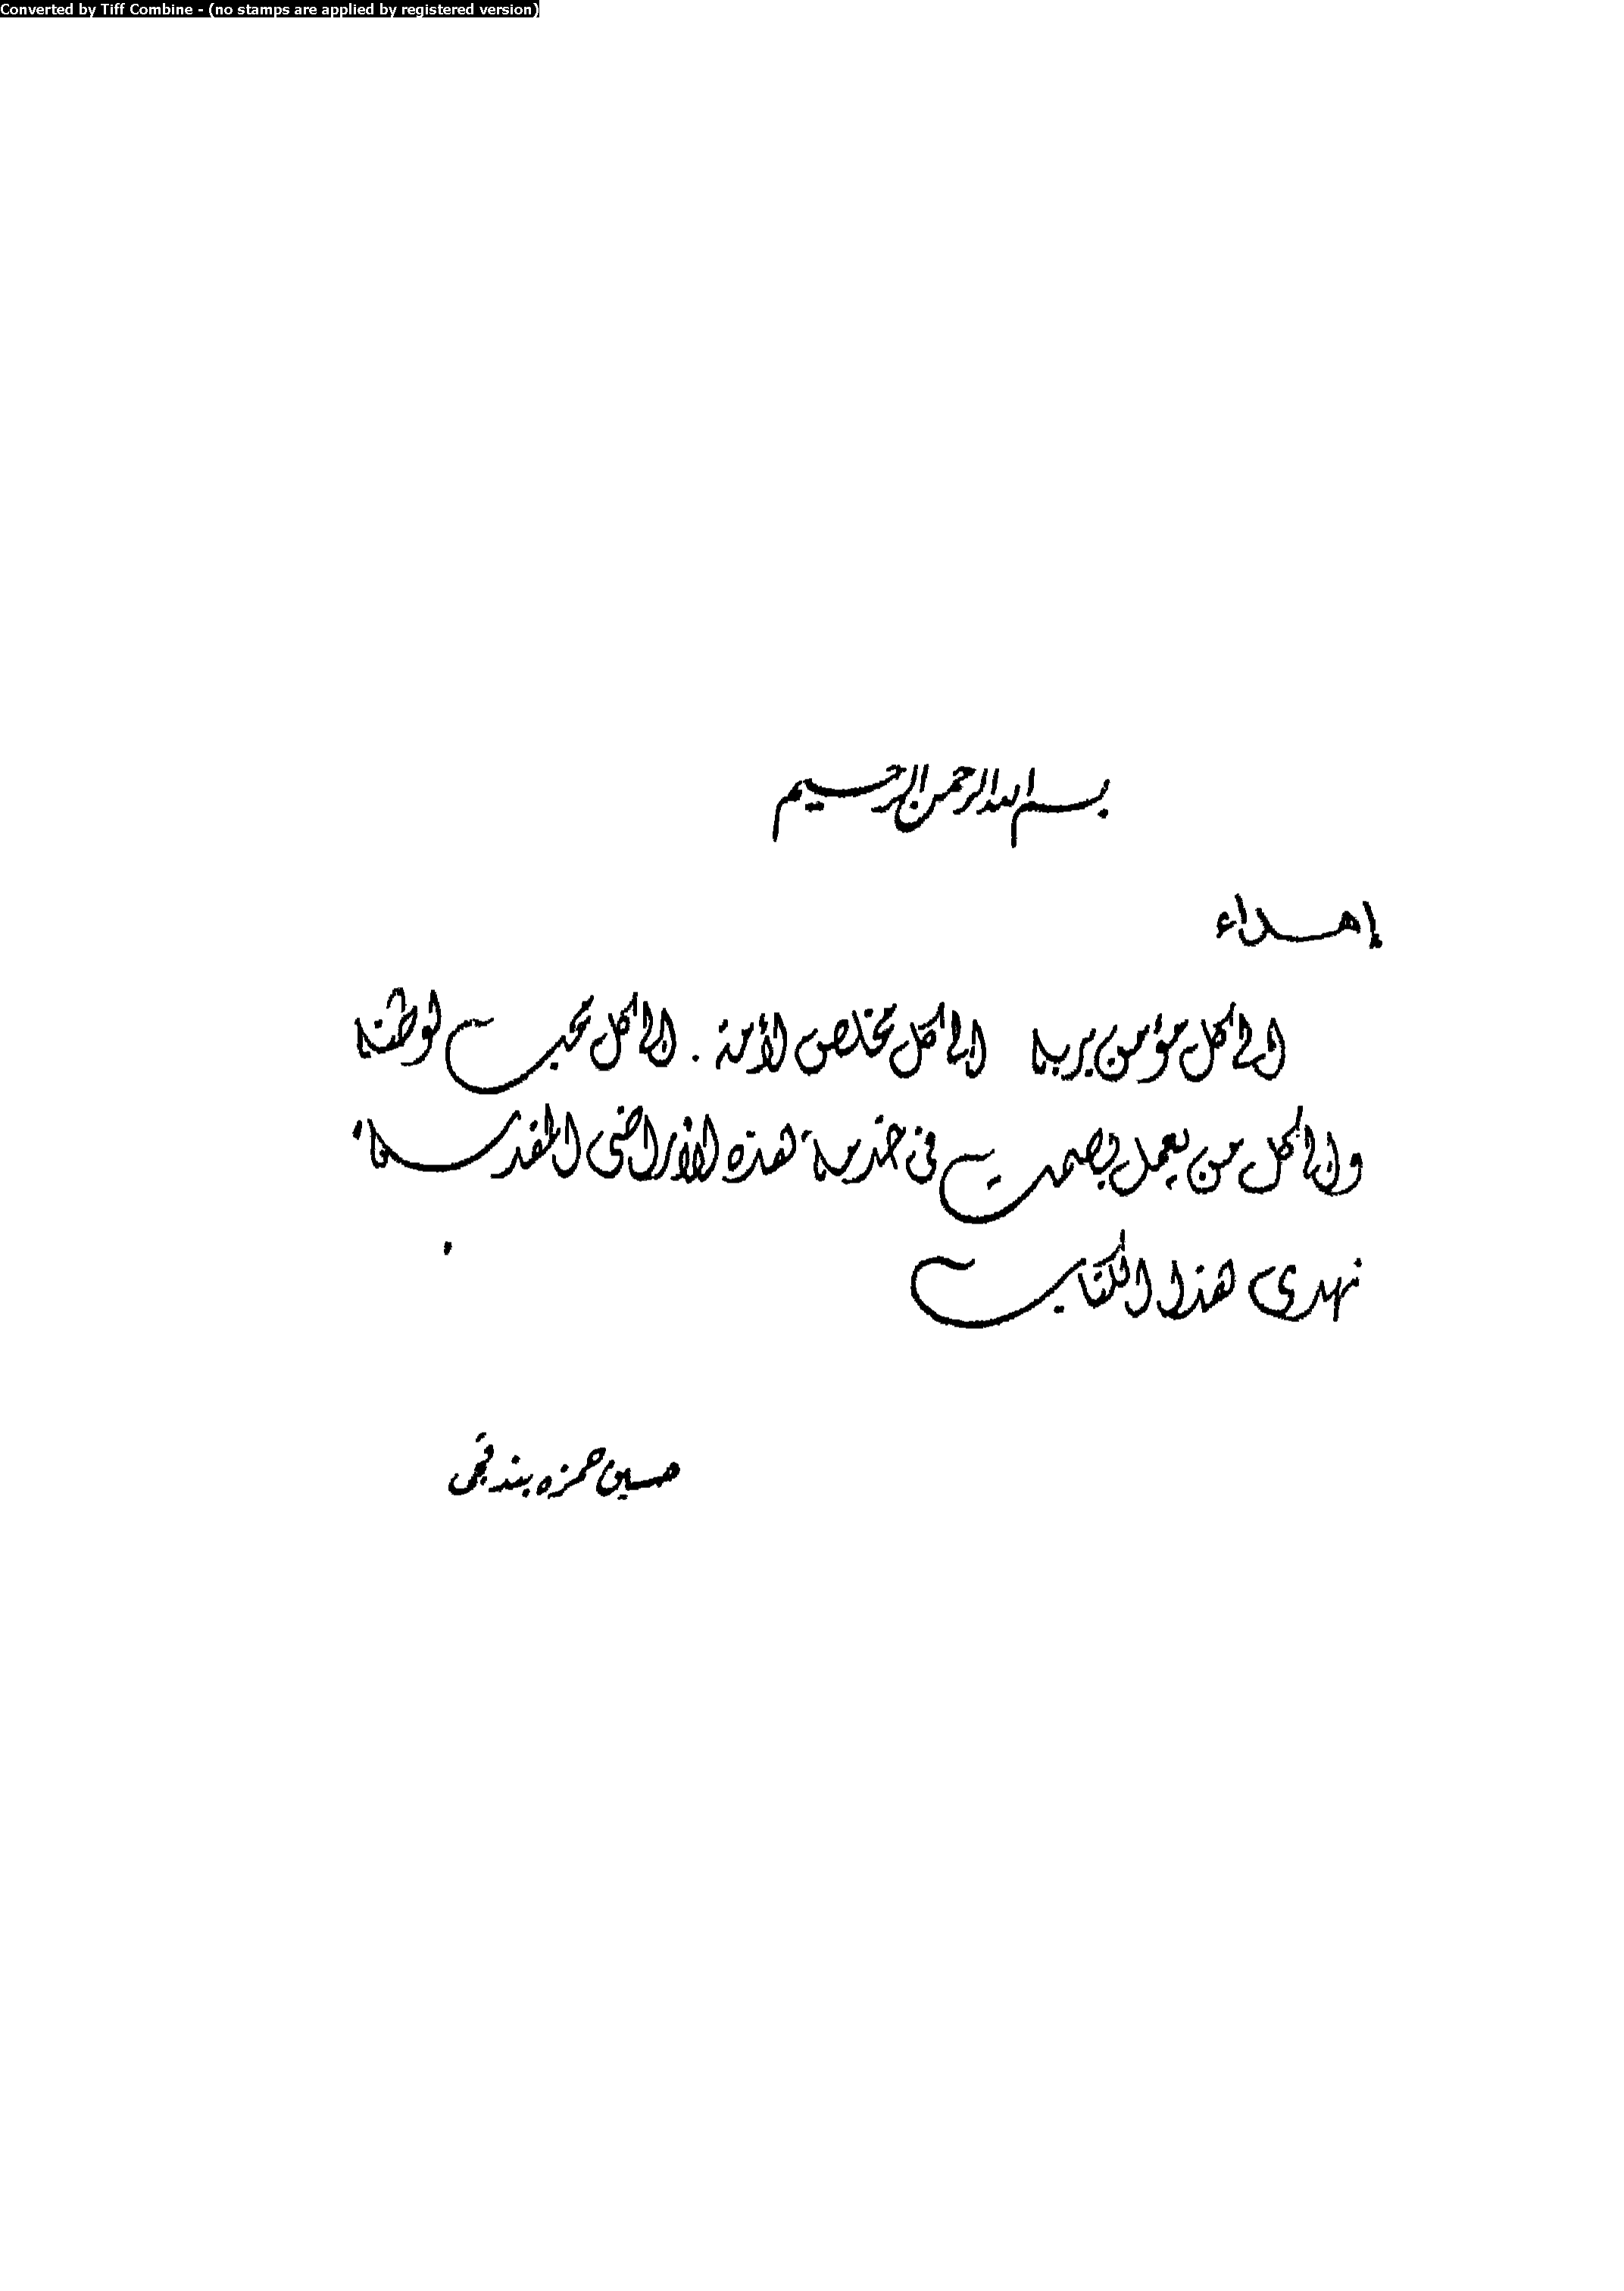 Converted by Tiff Combine - (no stamps are applied by registered version)
بسم الله الرحمن الرحيم
إهداء
الى كل مؤمن بربه الى كل مخلص لأمته . الى كل محب لوطنه
والى كل من يعمل بصمت فى خدمة هذه الأراضى المقدسة
نهدى هذا الكتاب
حسين حمزه بندقجى